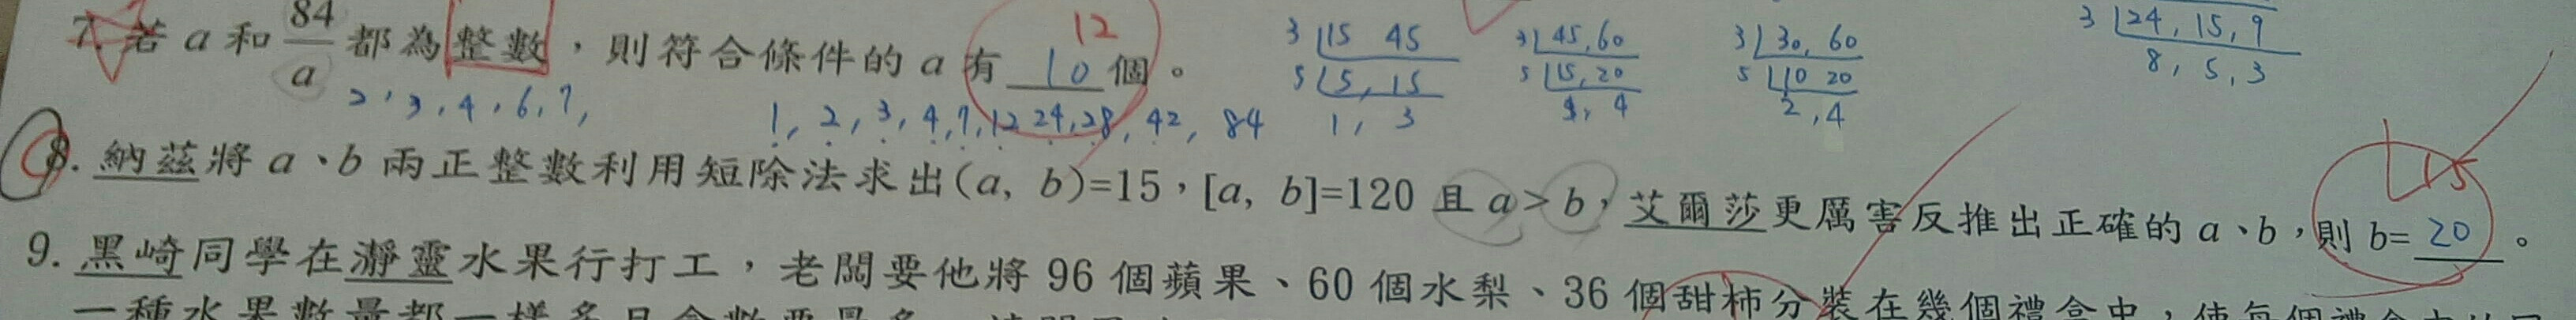 7. 若 a 和 84/a 都為整數，則符合條件的 a 有 10 個。
12
2, 3, 4, 6, 7,
1, 2, 3, 4, 7, 12 24, 28, 42, 84
3 15 45
5 5, 15
1, 3
3 45, 60
5 15, 20
4
3 30, 60
5 10 20
2, 4
3 24, 15, 9
8, 5, 3
8. 納茲將 a、b 兩正整數利用短除法求出(a, b)=15，[a, b]=120 且 a＞b，艾爾莎更厲害反推出正確的 a、b，則 b= 20 。
15
9. 黑崎同學在瀞靈水果行打工，老闆要他將 96 個蘋果、60 個水梨、36 個甜柿分裝在幾個禮盒中，使每個禮盒中
一種水果數量都一樣多且盒數要最多